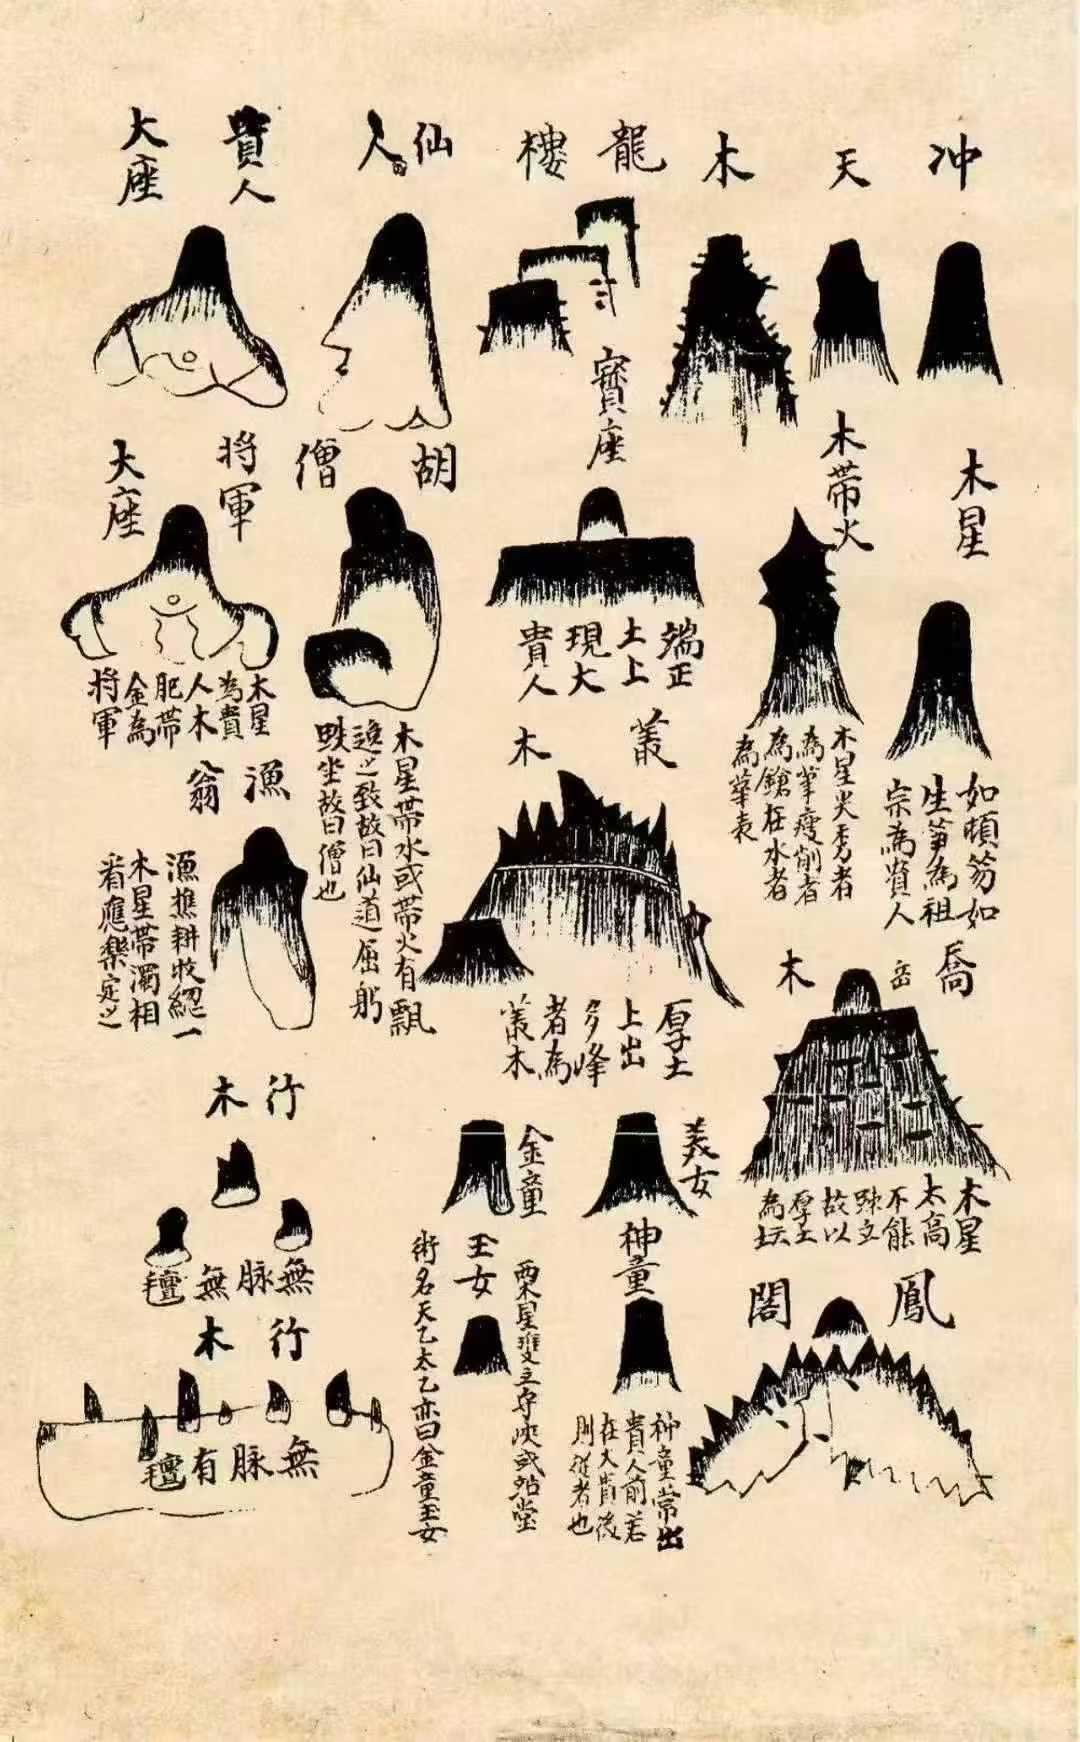 冲天木
龍樓
仙人
貴人大座
木帶火
寶座
木星
胡僧
將軍大座
如頓笏如
生笋為祖
宗為貴人
木星尖秀者
為筆瘦削者
為鎗在水者
為華表
端正
土上
現大
貴人
叢木
木星帶水或帶火有飄
逸之致故曰仙道屈躬
趺坐故曰僧也
木星
為貴
人木
肥帶
金為
將軍
漁翁
漁樵耕牧總一
木星帶濁相
看應樂定之
喬岳木
厚土
上出
多峰
者為
叢木
木星
太高
不能
踈立
故以
厚土
為坛
行木
無脉無氊
行木
無脉有氊
義女
金童
神童
玉女
術名天乙太乙亦曰金童玉女
鳳閣
神童常出
貴人前若
在大貴後
則從者也